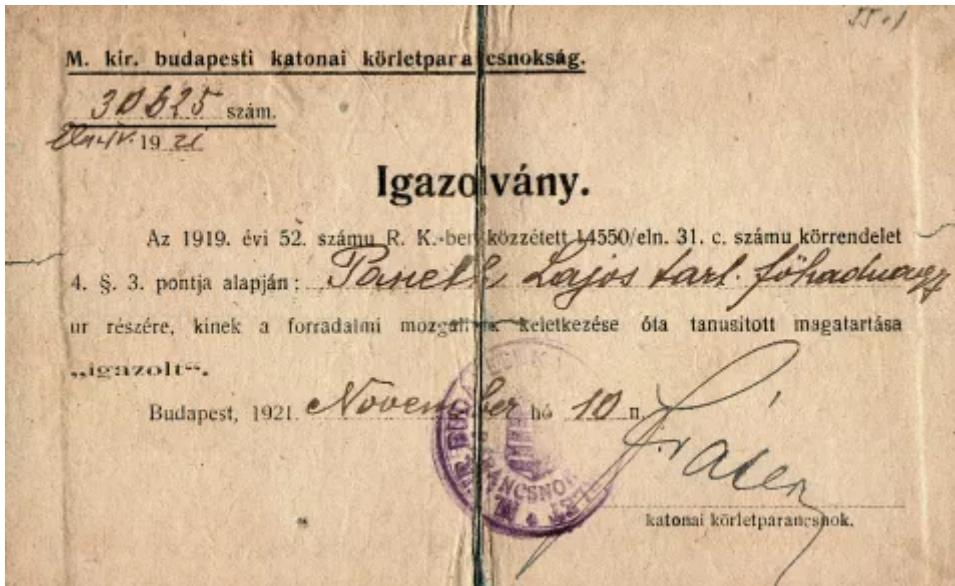 M. kir. budapesti katonai körletparancsnokság.
szám.
19 21
Igazolvány.
Az 1919. évi 52. számu R. K.-ben közzétett 14550/eln. 31. c. számu körrendelet
4. §. 3. pontja alapján: Paneth Lajos tart. főhadnagy
ur részére, kinek a forradalmi mozgalmak keletkezése óta tanusitott magatartása
„igazolt“.
Budapest, 1921. November hó 10 n.
katonai körletparancsnok.